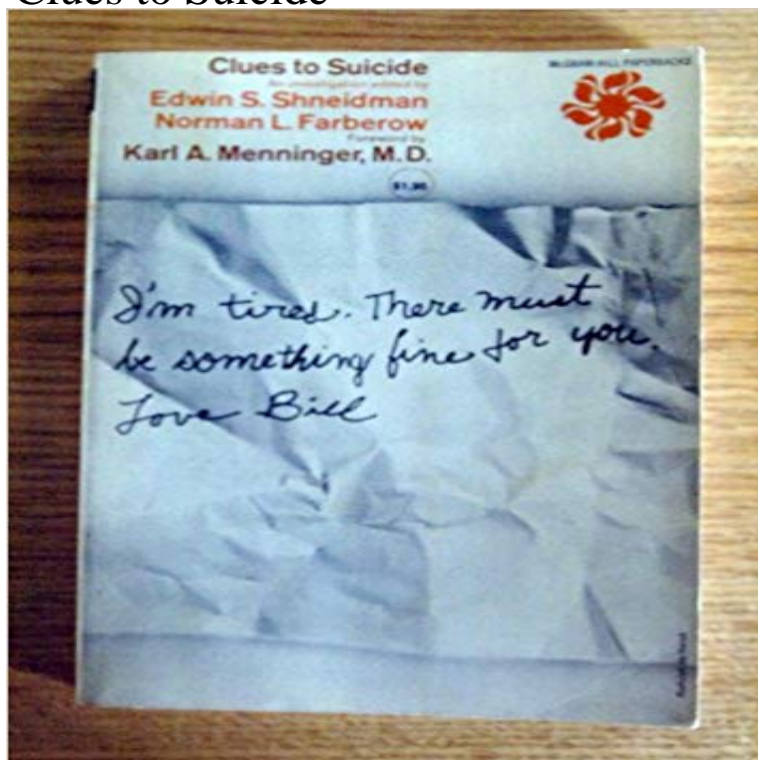 Clues to Suicide
Clues to Suicide
An investigation edited by
Edwin S. Shneidman
Norman L. Farberow
Foreword by
Karl A. Menninger, M.D.
$1.95
McGRAW-HILL PAPERBACKS
I'm tired. There must
be something fine for you.
Love Bill